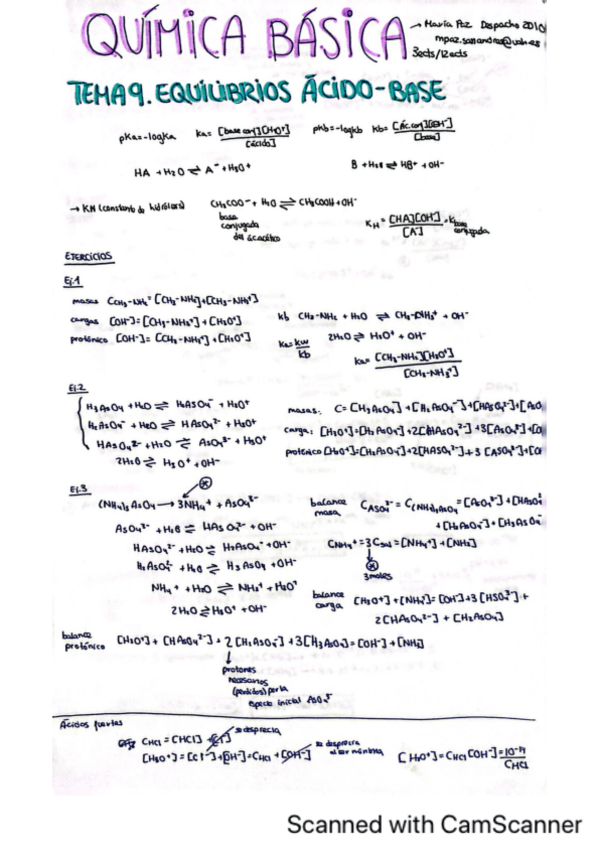 QUÍMICA BÁSICA
→ María Paz Despacho 2010
3ects/12ects
TEMA 9. EQUILIBRIOS ÁCIDO-BASE
pKa=-logKa Ka= [base conj][H3O+] / [ácido] pKb=-logKb Kb= [Ác.conj][OH-] / [base]
HA + H2O ⇌ A- + H3O+ B + H2O ⇌ HB+ + OH-
→ KH (constante de hidrólisis) CH3COO- + H2O ⇌ CH3COOH + OH-
base
conjugada
del ác acético
KH = [HA][OH-] / [A-]
conjugada
EJERCICIOS
Ej.1
masas CCH3-NH2 = [CH3-NH2]+[CH3-NH3+]
cargas [OH-]=[CH3-NH3+]+[H3O+]
protónico [OH-]=[CH3-NH3+]+[H3O+]
Kb CH3-NH2 + H2O ⇌ CH3-NH3+ + OH-
Ka= Kw / Kb 2H2O ⇌ H3O+ + OH-
Ka= [CH3-NH2][H3O+] / [CH3-NH3+]
Ej.2
H3AsO4 + H2O ⇌ H2AsO4- + H3O+
H2AsO4- + H2O ⇌ HAsO42- + H3O+
HAsO42- + H2O ⇌ AsO43- + H3O+
2H2O ⇌ H3O+ + OH-
masas: C=[H3AsO4]+[H2AsO4-]+[HAsO42-]+[AsO
carga: [H3O+]=[H2AsO4-]+2[HAsO42-]+3[AsO43-]+[O
protónico [H3O+]=[H2AsO4-]+2[HAsO42-]+3[AsO43-]+[O
Ej.3
(NH4)3AsO4 → 3NH4+ + AsO43-
AsO43- + H2O ⇌ HAsO42- + OH-
HAsO42- + H2O ⇌ H2AsO4- + OH-
H2AsO4- + H2O ⇌ H3AsO4 + OH-
NH4+ + H2O ⇌ NH3 + H3O+
2H2O ⇌ H3O+ + OH-
balance
masa
CAsO43- = C(NH4)3AsO4 = [AsO43-] + [HAsO4
+[H2AsO4-]+[H3AsO4
CNH4+ = 3Csal = [NH4+]+[NH3]
3moles
balance
carga
[H3O+]+[NH4+]=[OH-]+3[AsO43-]+
2[HAsO42-]+[H2AsO4-]
balance
protónico
[H3O+]+[HAsO42-]+2[H2AsO4-]+3[H3AsO4]=[OH-]+[NH3]
protones
necesarios
(perdidos) por la
especie inicial AsO43-
Ácidos fuertes
CHCl = [HCl] + [Cl-] se desprecia
[H3O+]=[Cl-]+[OH-]=CHCl+[OH-] se desprecia
[H3O+]=CHCl [OH-]= 10-14 / CHCl
Scanned with CamScanner